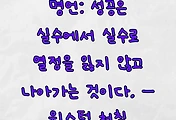 명언: 성공은
실수에서 실수로
열정을 잃지 않고
나아가는 것이다. —
윈스턴 처칠